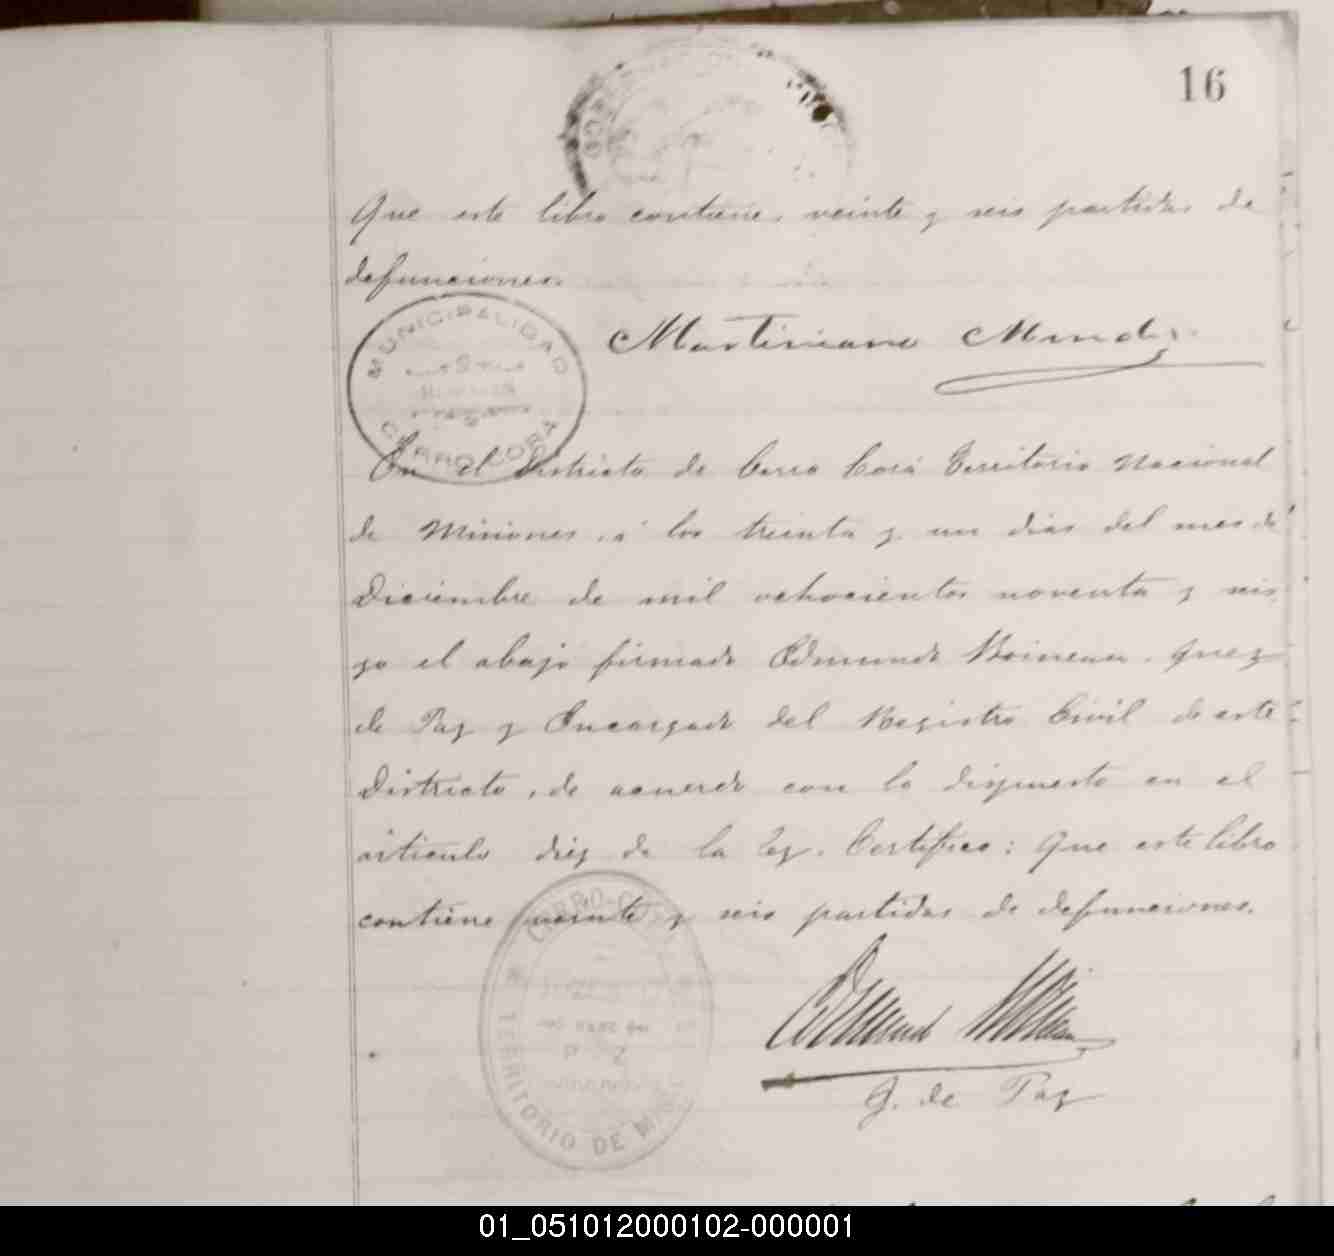 16
Que este libro contiene veinte y seis partidas de
defunciones.
MUNICIPALIDAD
CERRO CORÁ
Martiniano Mendez
En el Districto de Cerro Corá Territorio Nacional
de Misiones, á los treinta y un dias del mes de
Diciembre de mil ochocientos noventa y seis
yo el abajo firmado Edmundo Juez
de Paz y Encargado del Registro Civil de este
Districto, de acuerdo con lo dispuesto en el
articulo diez de la Ley. Certifico: Que este libro
contiene veinte y seis partidas de defunciones.
CERRO-CORÁ
TERRITORIO DE
Edmundo
J. de Paz
01_051012000102-000001